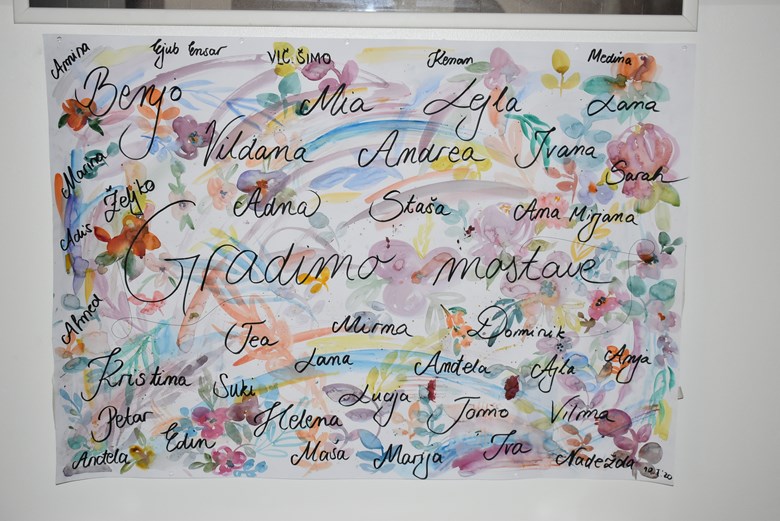 Armina Ejub Ensar VLČ. ŠIMO Kenan Medina
Benjo Mia Lejla Lana
Vildana Andrea Ivana
Marina Sarah
Željko Adna Staša Ana Mirjana
Adis
Gradimo mostove
Ahmed
Tea Mirma Dominik
Kristina Suki Lana Anđela Ajla Anja
Lucija
Petar Helena Tomo Vilma
Anđela Edin Maša Marija Iva Nadežda